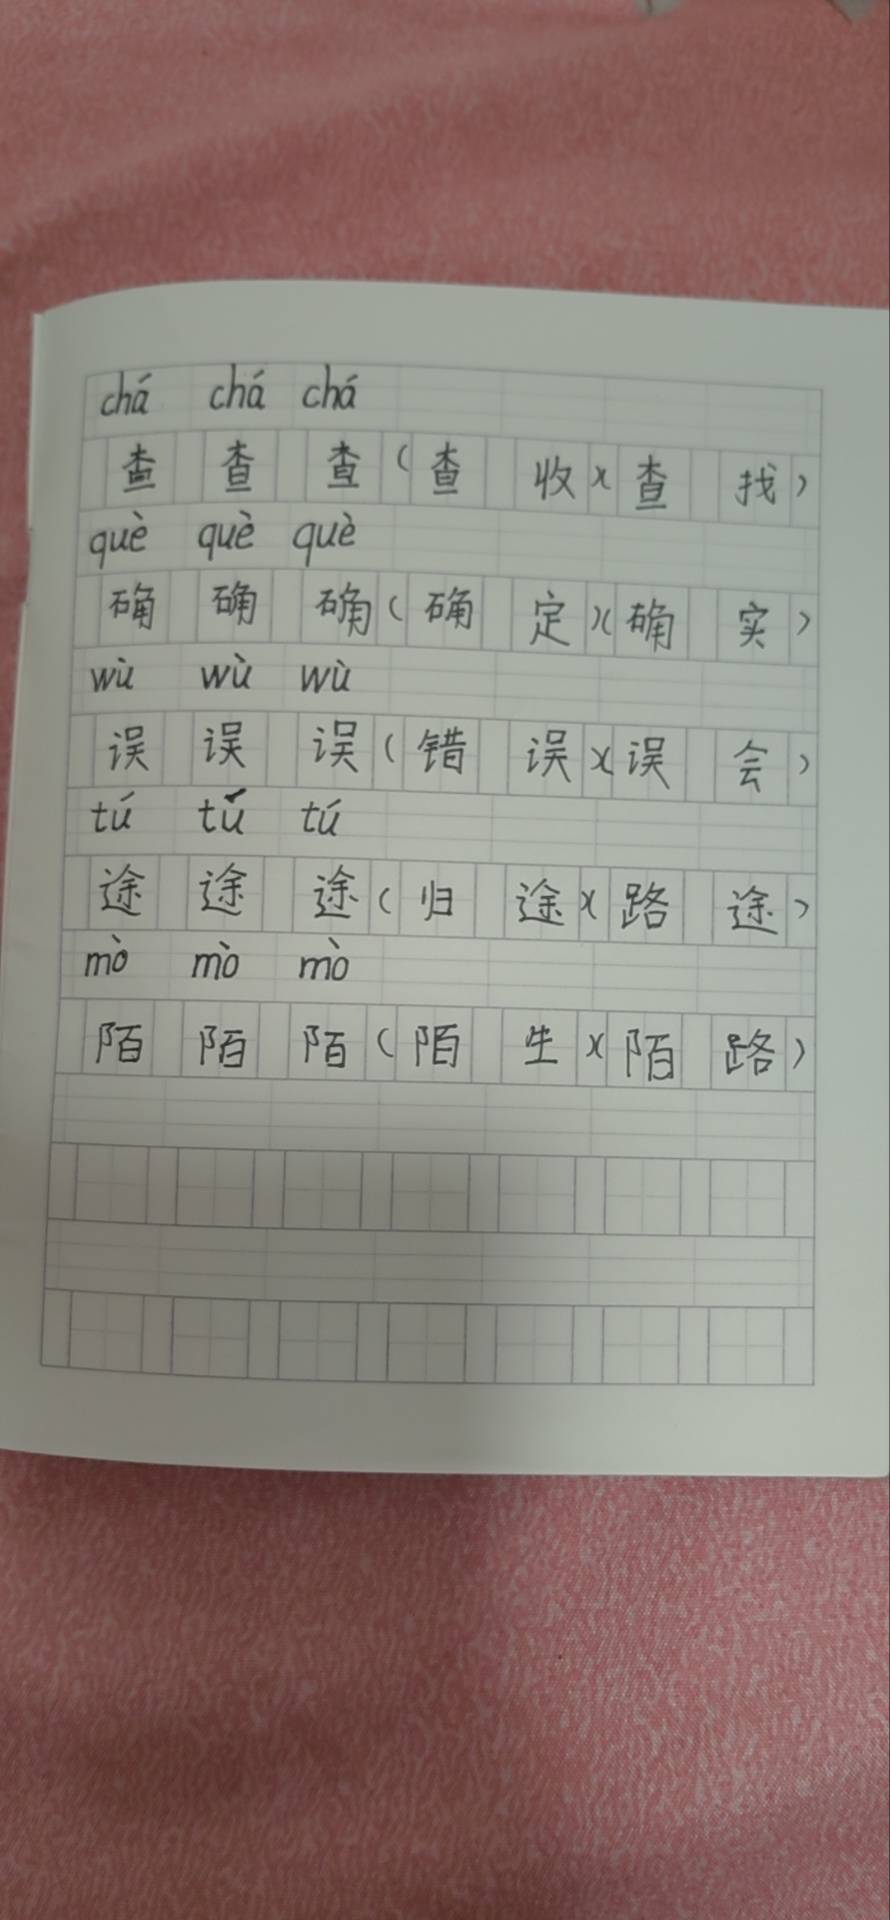 chá chá chá
查 查 查 (查 收)(查 找)
què què què
确 确 确 (确 定)(确 实)
wù wù wù
误 误 误 (错 误)(误 会)
tú tú tú
途 途 途 (归 途)(路 途)
mò mò mò
陌 陌 陌 (陌 生)(陌 路)